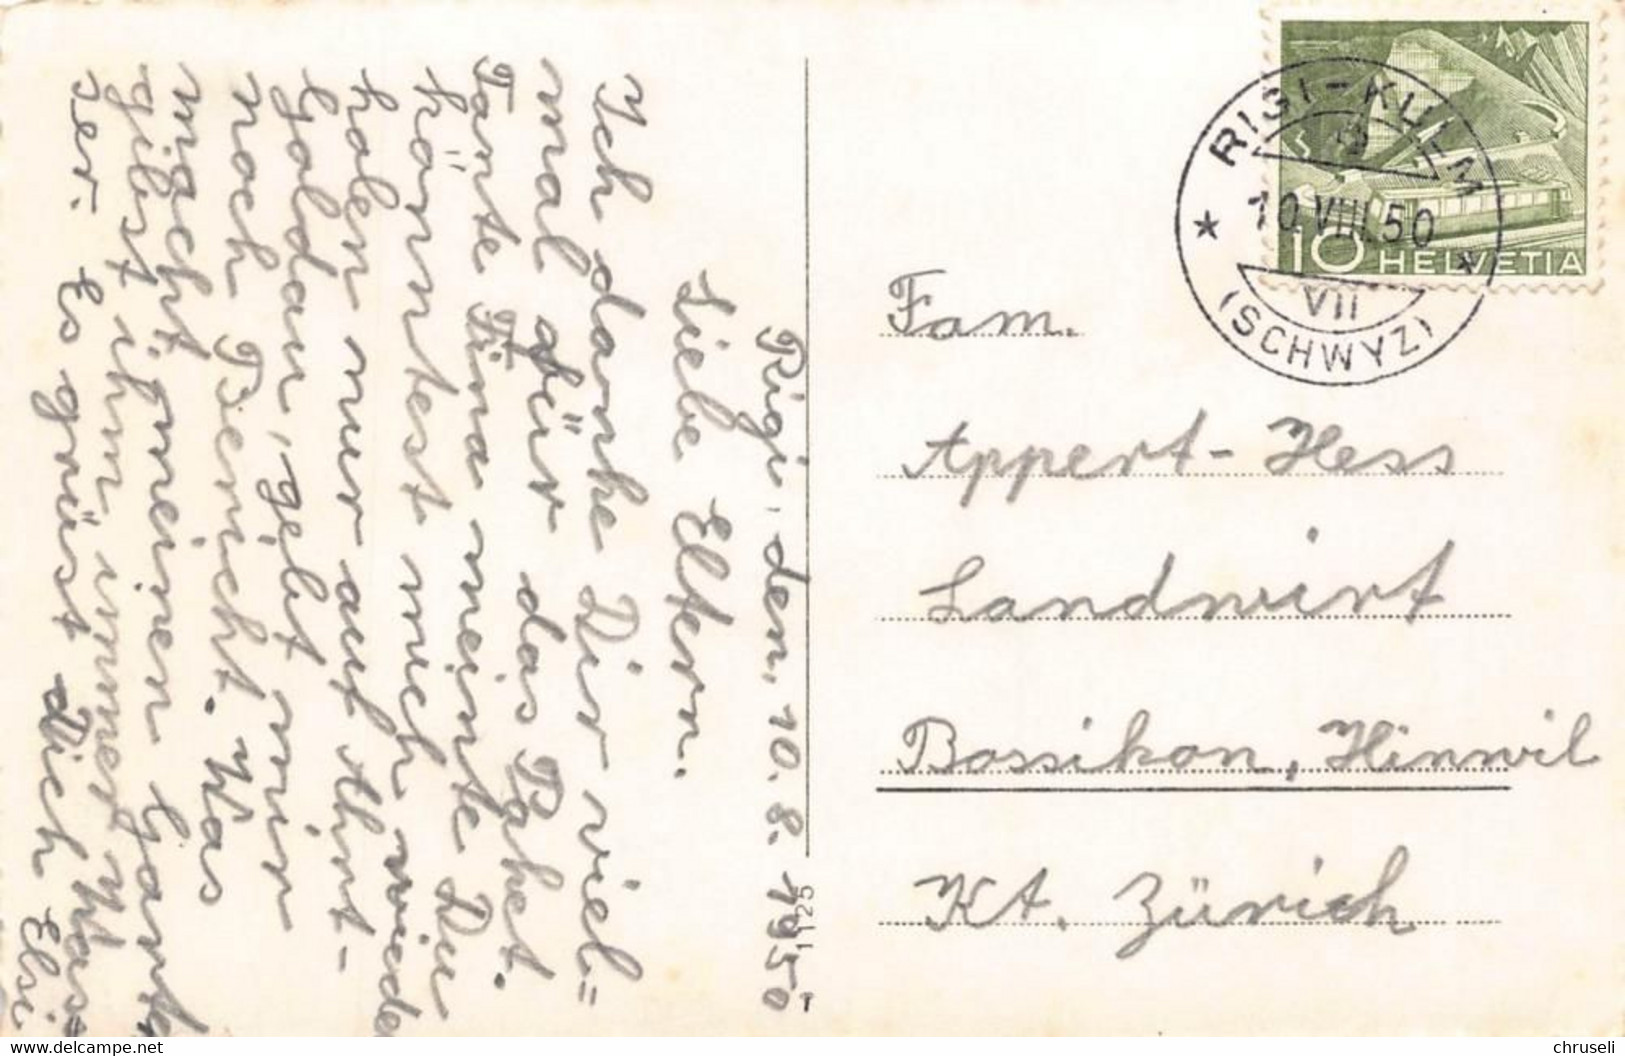 Rigi, den, 10. 8. 1950
Liebe Eltern.
Ich danke Dir viel=
mal für das Paket.
Tante Fina meinte Du
könntest mich wieder
holen nur auf Ahrt-
Goldau, gebt mir
noch Bericht. Was
macht, meinen Garten
gibst ihm immer Was=
ser. Es grüst Dich Elsi
1125
RIGI-KULM
10.VIII.50
VII
(SCHWYZ)
10 HELVETIA
Fam.
Appert-Hess
Landwirt
Bossikon, Hinwil
Kt. Zürich
www.delcampe.net
chruseli